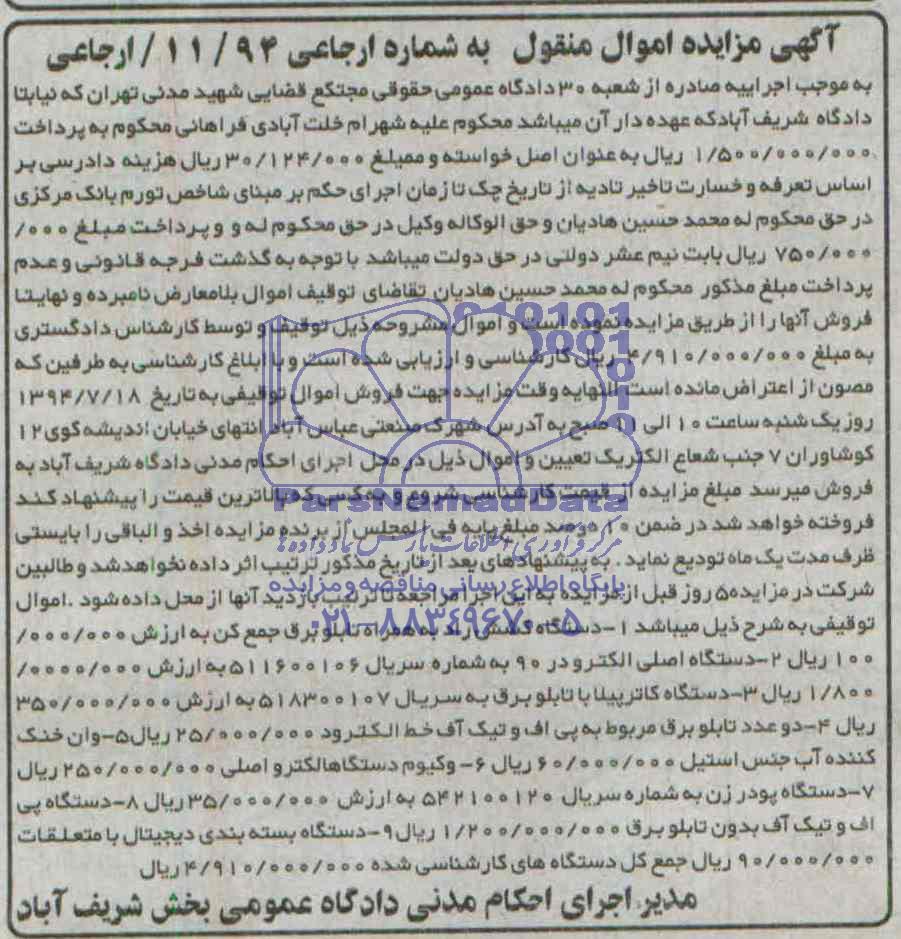 آگهی مزایده اموال منقول به شماره ارجاعی ۱۱/۹۴/ارجاعی
به موجب اجراییه صادره از شعبه ۳۰ دادگاه عمومی حقوقی مجتکع قضایی شهید مدنی تهران که نیابتا
دادگاه شریف آبادکه عهده دار آن میباشد محکوم علیه شهرام خلت آبادی فراهانی محکوم به پرداخت
۱/۵۰۰/۰۰۰/۰۰۰ ریال به عنوان اصل خواسته و ممبلغ ۳۰/۱۲۴/۰۰۰ ریال هزینه دادرسی بر
اساس تعرفه و خسارت تاخیر تادیه از تاریخ چک تا زمان اجرای حکم بر مبنای شاخص تورم بانک مرکزی
در حق محکوم له محمد حسین هادیان و حق الوکاله وکیل در حق محکوم له و و پرداخت مبلغ ۰۰۰/
۷۵۰/۰۰۰ ریال بابت نیم عشر دولتی در حق دولت میباشد با توجه به گذشت فرجه قانونی و عدم
پرداخت مبلغ مذکور محکوم له محمد حسین هادیان تقاضای توقیف اموال بلامعارض نامبرده و نهایتا
فروش آنها را از طریق مزایده نموده است و اموال مشروحه ذیل توقیف و توسط کارشناس دادگستری
به مبلغ ۴/۹۱۰/۰۰۰/۰۰۰ ریال کارشناسی و ارزیابی شده است و با ابلاغ کارشناسی به طرفین که
مصون از اعتراض مانده است النهایه وقت مزایده جهت فروش اموال توقیفی به تاریخ ۱۳۹۴/۷/۱۸
روز یک شنبه ساعت ۱۰ الی ۱۱ صبح به آدرس شهرک صنعتی عباس آباد انتهای خیابان اندیشه کوی ۱۲
کوشاوران ۷ جنب شعاع الکتریک تعیین و اموال ذیل در محل اجرای احکام مدنی دادگاه شریف آباد به
فروش میرسد مبلغ مزایده از قیمت کارشناسی شروع و به کسی که بالاترین قیمت را پیشنهاد کند
فروخته خواهد شد در ضمن ۱۰ درصد مبلغ پایه فی المجلس از برنده مزایده اخذ و الباقی را بایستی
ظرف مدت یک ماه تودیع نماید . به پیشنهادهای بعد از تاریخ مذکور ترتیب اثر داده نخواهد شد و طالبین
شرکت در مزایده ۵ روز قبل از مزایده به این اجرا مراجعه تا ترتیب بازدید آنها از محل داده شود .اموال
توقیفی به شرح ذیل میباشد ۱-دستگاه کشش راد به همراه تابلو برق جمع کن به ارزش ۰۰۰/۰۰۰/
۱۰۰ ریال ۲-دستگاه اصلی الکترو در ۹۰ به شماره سریال ۵۱۱۶۰۰۱۰۶ به ارزش ۰۰۰/۰۰۰۰/
۱/۸۰۰ ریال ۳-دستگاه کاترپیلا با تابلو برق به سریال ۵۱۸۳۰۰۱۰۷ به ارزش ۳۵۰/۰۰۰/۰۰۰
ریال ۴-دو عدد تابلو برق مربوط به پی اف و تیک آف خط الکترود ۲۵/۰۰۰/۰۰۰ ریال۵-وان خنک
کننده آب جنس استیل ۶۰/۰۰۰/۰۰۰ ریال ۶-وکیوم دستگاهالکترو اصلی ۲۵۰/۰۰۰/۰۰۰ ریال
۷-دستگاه پودر زن به شماره سریال ۵۴۲۱۰۰۱۲۰ به ارزش ۳۵/۰۰۰/۰۰۰ ریال ۸-دستگاه پی
اف و تیک آف بدون تابلو برق ۱/۲۰۰/۰۰۰/۰۰۰ ریال ۹-دستگاه بسته بندی دیجیتال با متعلقات
۹۰/۰۰۰/۰۰۰ ریال جمع کل دستگاه های کارشناسی شده ۴/۹۱۰/۰۰۰/۰۰۰ ریال
مدیر اجرای احکام مدنی دادگاه عمومی بخش شریف آباد
ParsNamadData
مرکز فرآوری اطلاعات پارس نماد داده ها
پایگاه اطلاع رسانی مناقصه و مزایده
۰۲۱-۸۸۳۴۹۶۷۰-۵